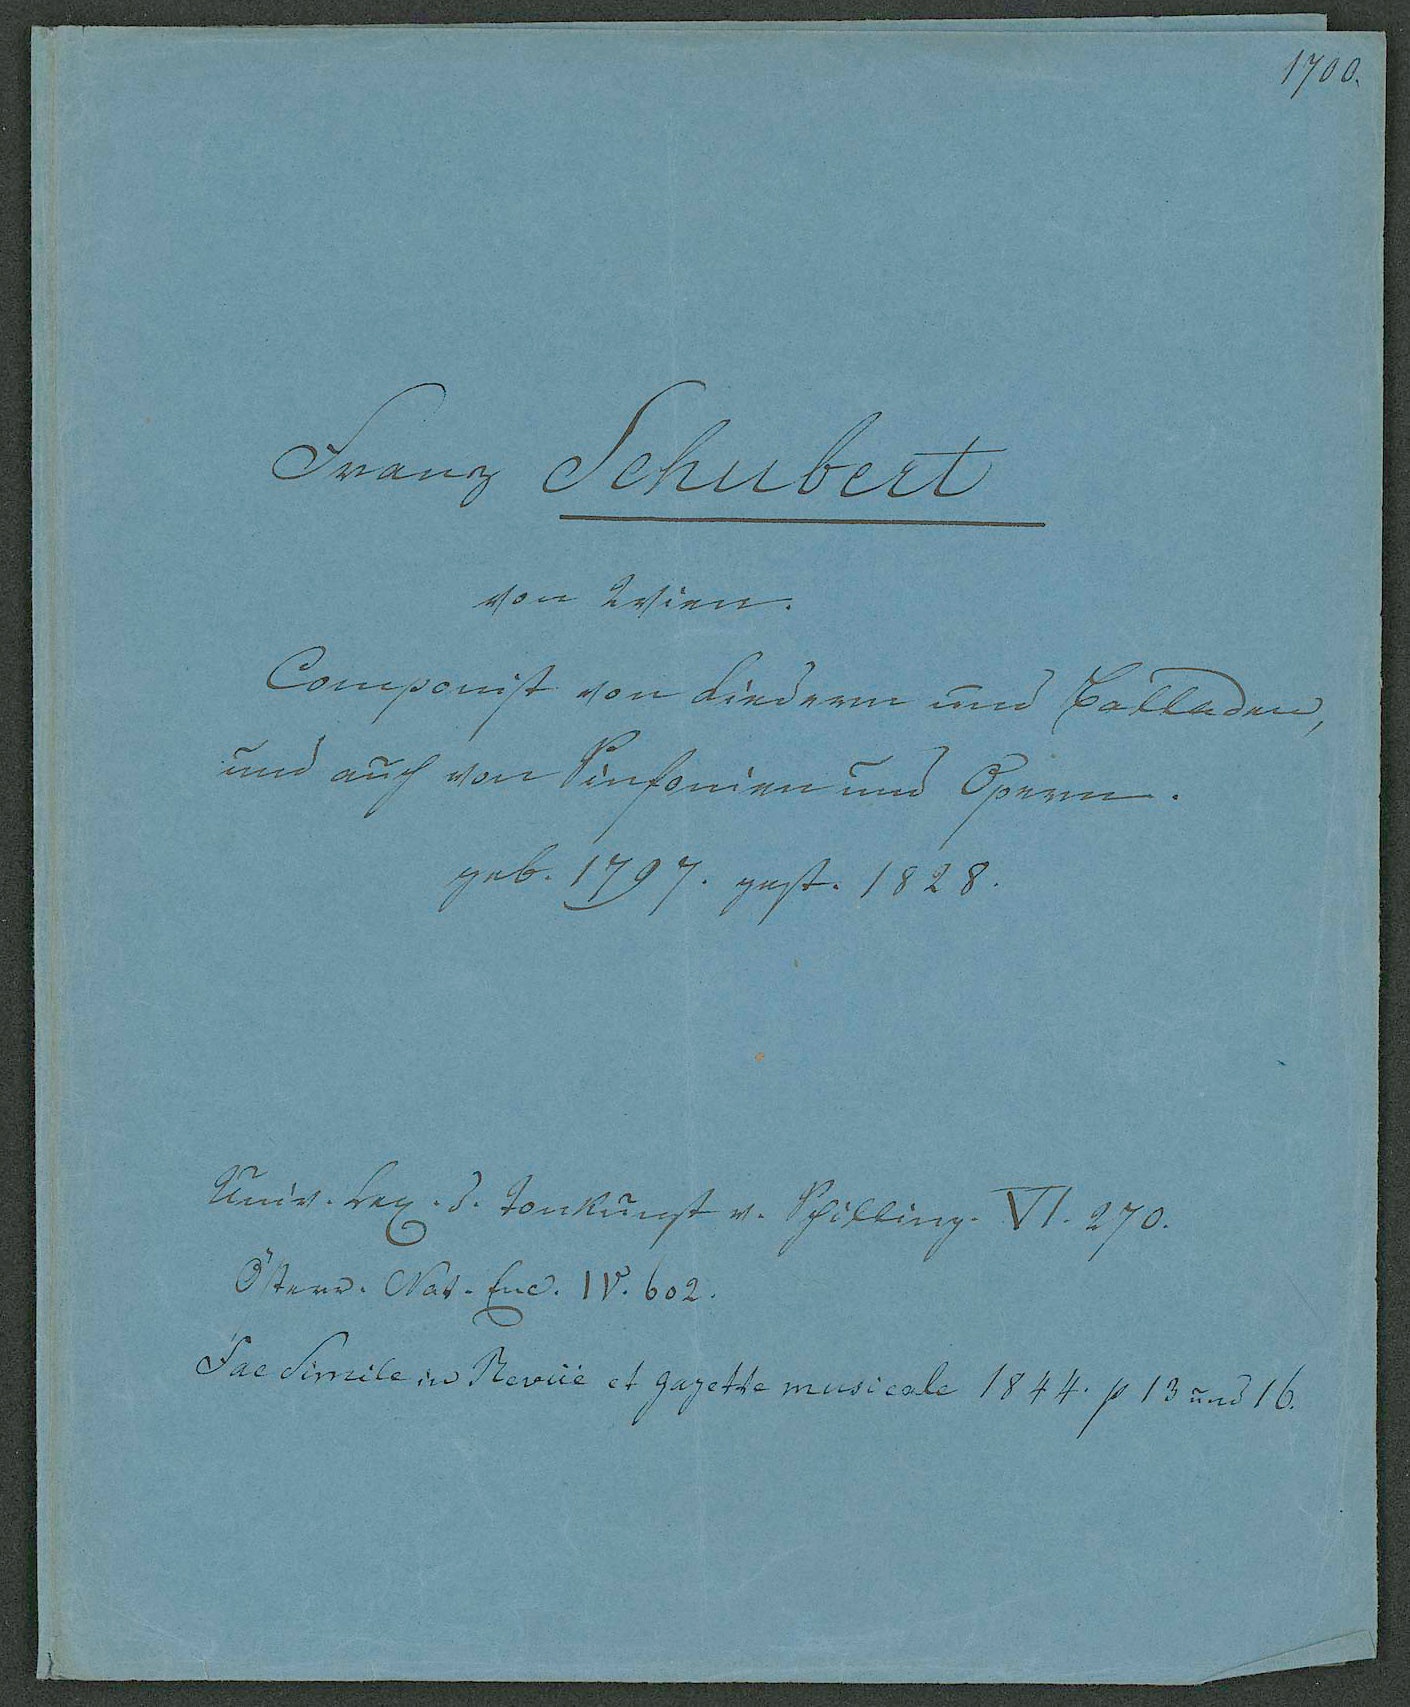 1700.
Franz Schubert
von Wien.
Componist von Liedern und Balladen,
und auch von Sinfonien und Opern.
geb. 1797. gest. 1828.
Univ. Lex. d. Tonkunst v. Schilling. VI. 270.
Österr. Nat. Enc. IV. 602.
Fac Simile in Revüe et gazette musicale 1844. p 13 und 16.